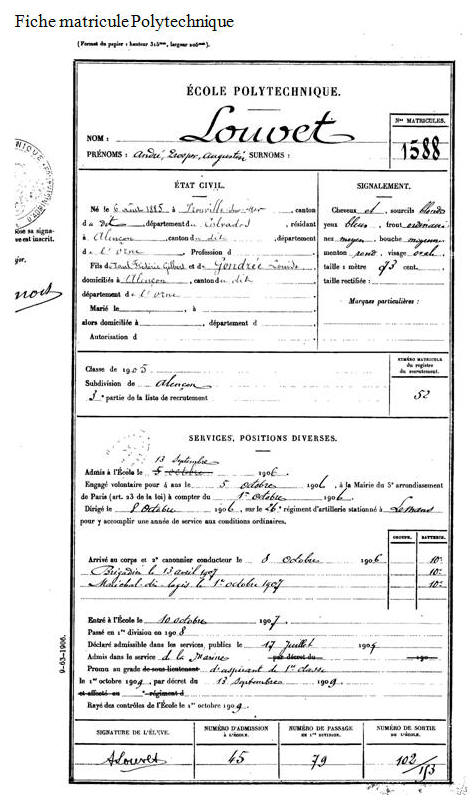 Fiche matricule Polytechnique
(Format du papier : hauteur 315mm, largeur 205mm).
ÉCOLE POLYTECHNIQUE.
NOM : Louvet
PRÉNOMS : André, Prosper, Augustin SURNOMS :
Nos MATRICULES.
1588
ÉTAT CIVIL.
Né le 6 1885 à Trouville-sur-mer, canton
du dit, département du Calvados, résidant
à Alençon, canton du dit, département
de l'Orne Profession d
Fils de Paul Frédéric Gilbert et de Gondrée Louise
domiciliés à Alençon, canton du dit
département de l'Orne
Marié le , à
alors domiciliée à , département d
Autorisation d
SIGNALEMENT.
Cheveux et, sourcils blonds
yeux bleus, front ordinaire
nez moyen, bouche moyenne
menton rond, visage ovale
taille : 1 mètre 73 cent.
taille rectifiée :
Marques particulières :
Classe de 1905
Subdivision de Alençon
3e partie de la liste de recrutement
NUMÉRO MATRICULE
du registre
du recrutement.
52
SERVICES, POSITIONS DIVERSES.
13 Septembre
Admis à l'École le 5 octobre 1906.
Engagé volontaire pour 4 ans le 5 octobre 1906, à la Mairie du 5e arrondissement
de Paris (art. 23 de la loi) à compter du 1er octobre 1906.
Dirigé le 8 octobre 1906, sur le 26e régiment d'artillerie stationné à Le Mans
pour y accomplir une année de service aux conditions ordinaires.
GROUPE. BATTERIE.
Arrivé au corps et 2e canonnier conducteur le 8 octobre 1906 10e
Brigadier le 13 avril 1907 10e
Maréchal des logis le 1er octobre 1907 10e
Entré à l'École le 10 octobre 1907.
Passé en 1re division en 1908
Déclaré admissible dans les services publics le 17 Juillet 1909
Admis dans le service de la Marine par décret du 190
Promu au grade de sous-lieutenant d'aspirant de 1re classe
le 1er octobre 1909, par décret du 13 Septembre 1909.
et affecté au e régiment d
Rayé des contrôles de l'École le 1er octobre 1909.
SIGNATURE DE L'ÉLÈVE.
NUMÉRO D'ADMISSION
À L'ÉCOLE.
NUMÉRO DE PASSAGE
EN 1re DIVISION.
NUMÉRO DE SORTIE
DE L'ÉCOLE.
ALouvet 45 79 102/153
9-63-1906.